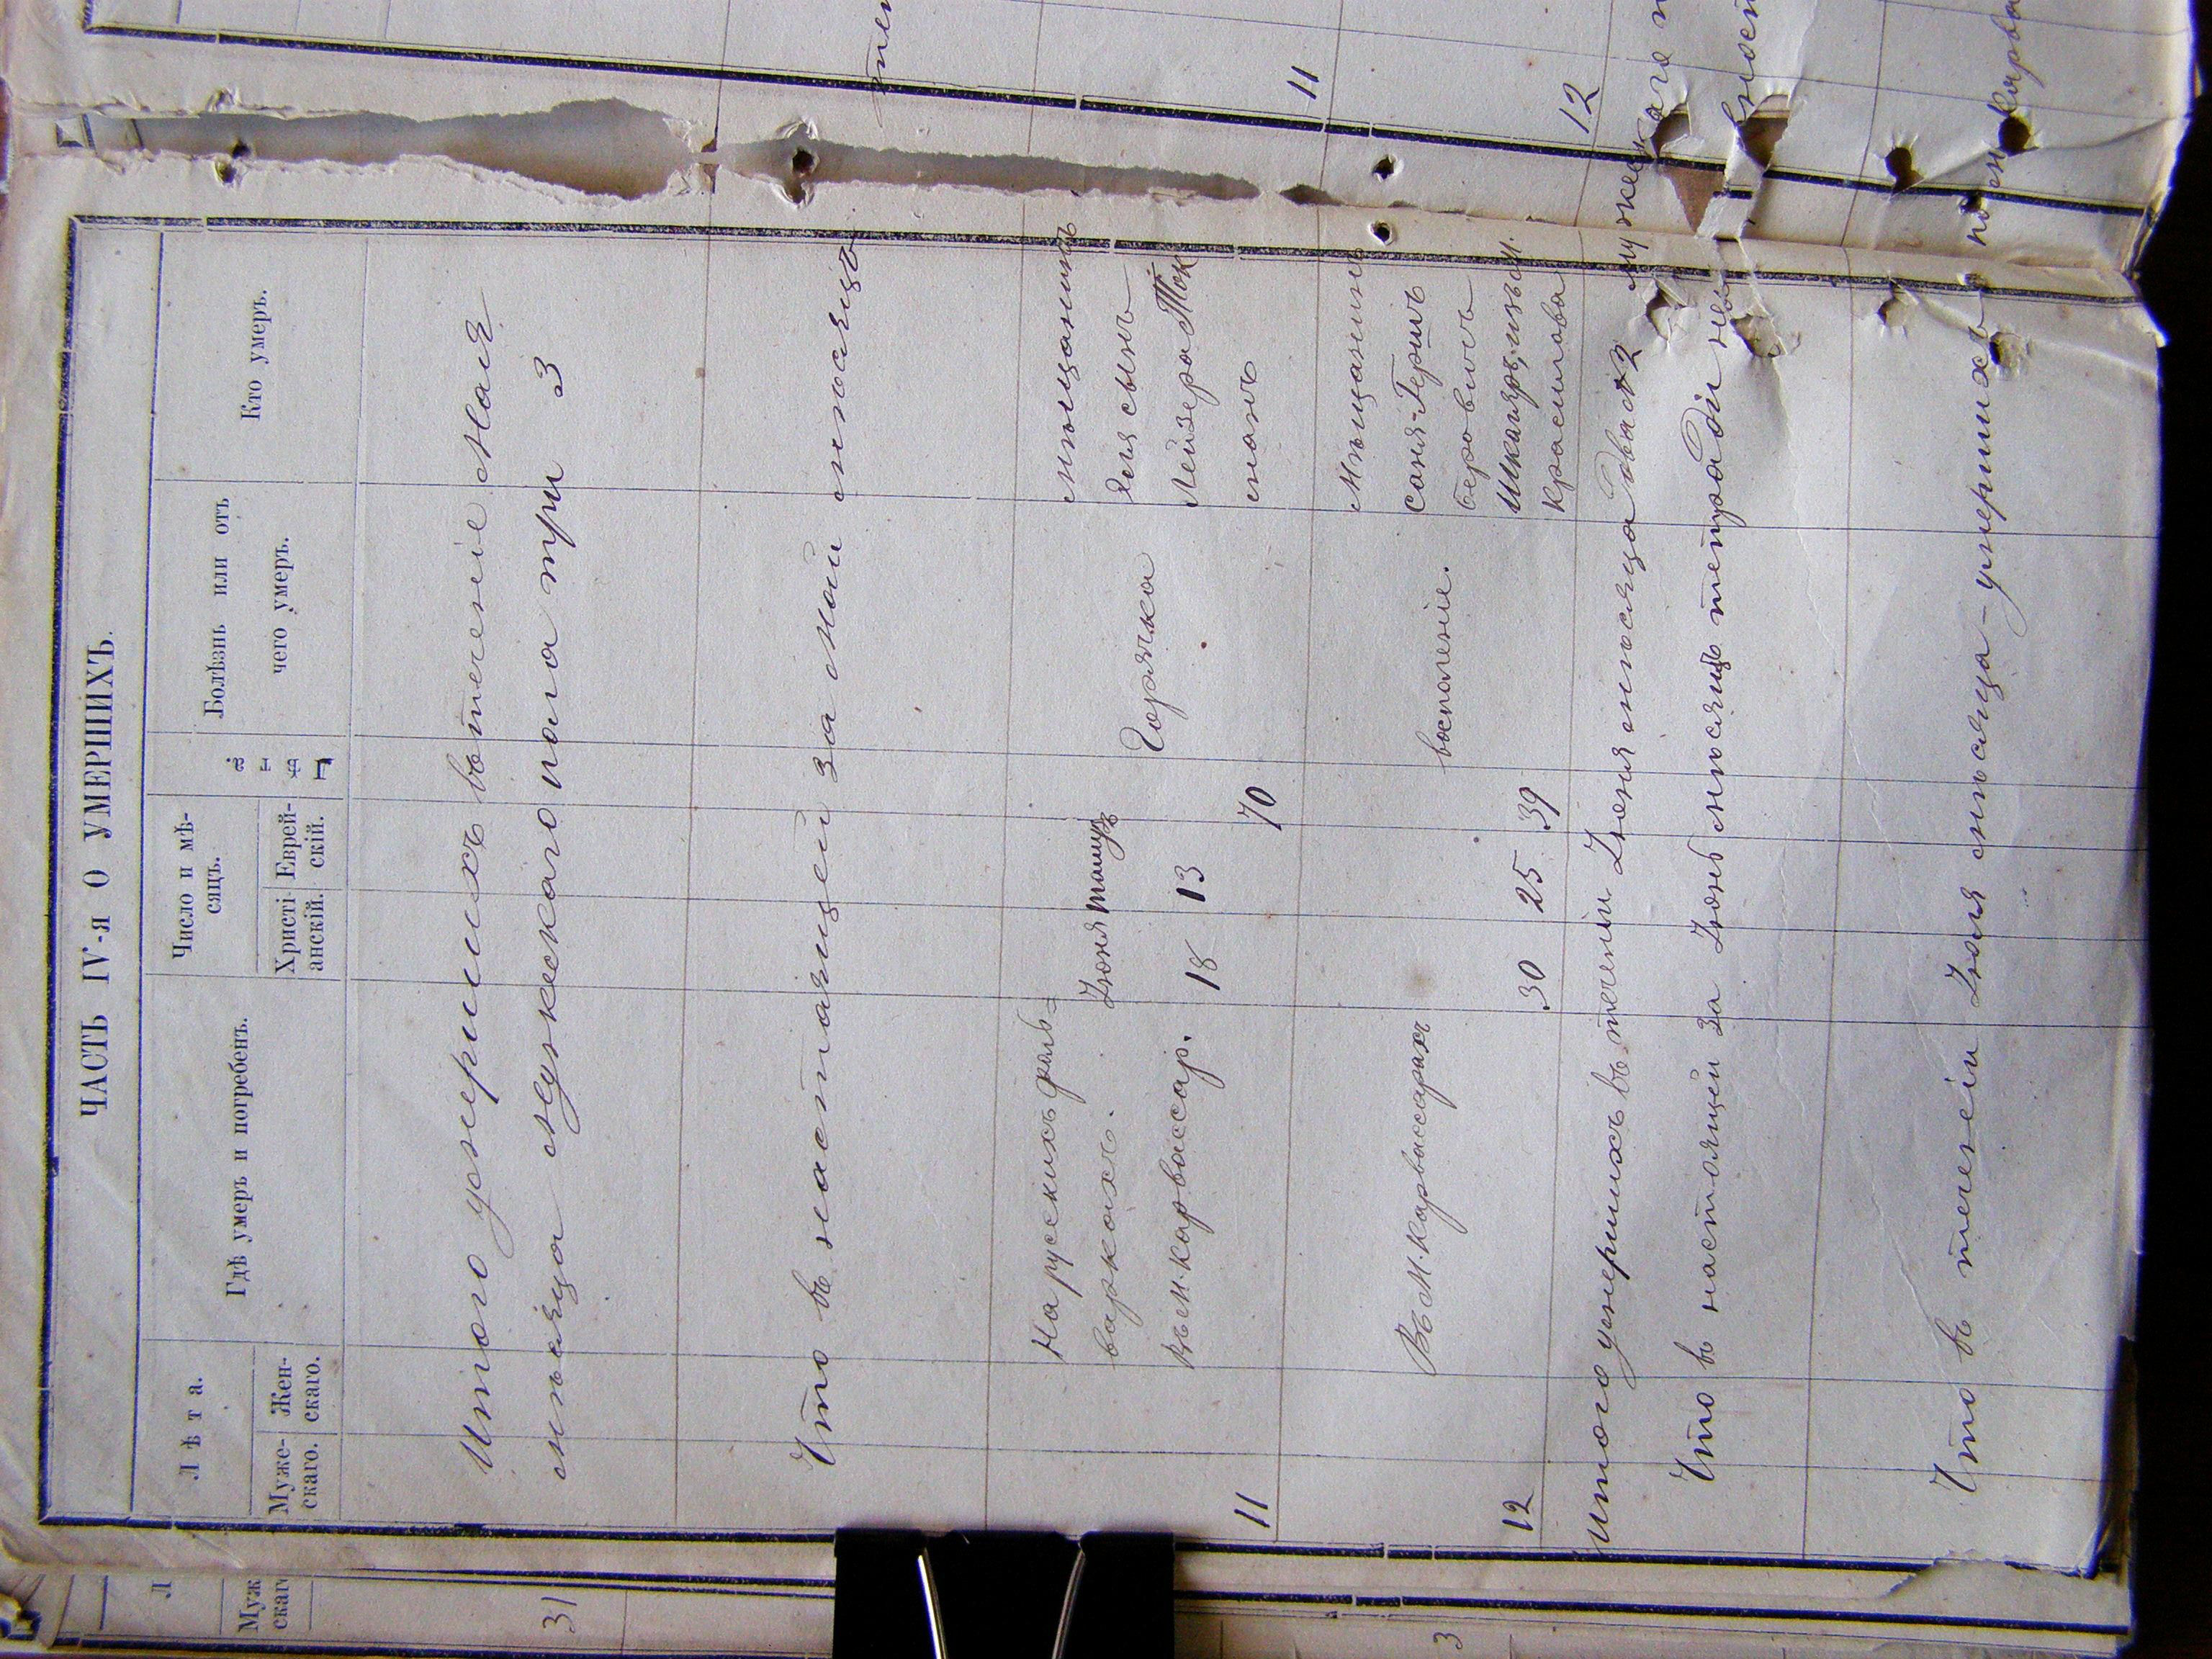 ЧАСТЬ IV-я О УМЕРШИХЪ.
Лѣта.
Муже-
скаго.
Жен-
скаго.
Гдѣ умеръ и погребенъ.
Число и мѣ-
сяцъ.
Христі-
анскій.
Еврей-
скій.
Лѣта
Болѣзнь или отъ
чего умеръ.
Кто умеръ.
Итого умершихъ въ теченіе Мая
мѣсяца мужескаго пола три 3
Что въ настоящей за Май мѣсяцъ
11
На русскихъ фоль=
варкахъ.
въ м. карвассар.
Іюня
18
тамуз
13
70
Горячка
мѣщанинъ
сынъ
Лейзера Ток
манъ
11
12
Въ М. Карвассарахъ
30
25
39
воспаленіе.
Мѣщанинъ
Саня-Гершъ
Беровичъ
Шкляръ, изъ м.
Красилова
12
Итого умершихъ въ теченіи Іюня мѣсяца два 2 мужескаго п
Что въ настоящей за Іюнь мѣсяцъ тетради
Что въ теченіи Іюля мѣсяца - умершихъ
Л
Муж
скаг
31
3